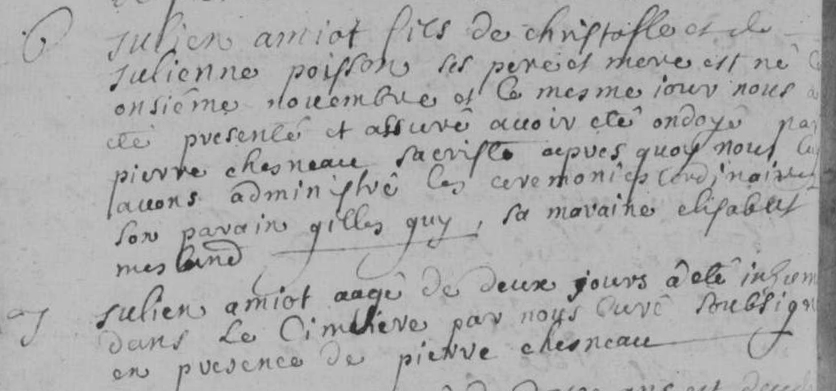 6 Julien amiot fils de christofle et de
Julienne poisson ses pere et mere est né le
onsiême novembre et le mesme iour nous a
eté presenté et assuré avoir eté ondoyé par
pierre chesneau sacriste apres quoy nous luy
avons administré les ceremonies ordinaires
son parain gilles guy, sa maraine elisabeth
mesland
7 Julien amiot aagé de deux jours a eté inhum
dans le Cimetiere par nous Curé soubsign
en presence de pierre chesneau